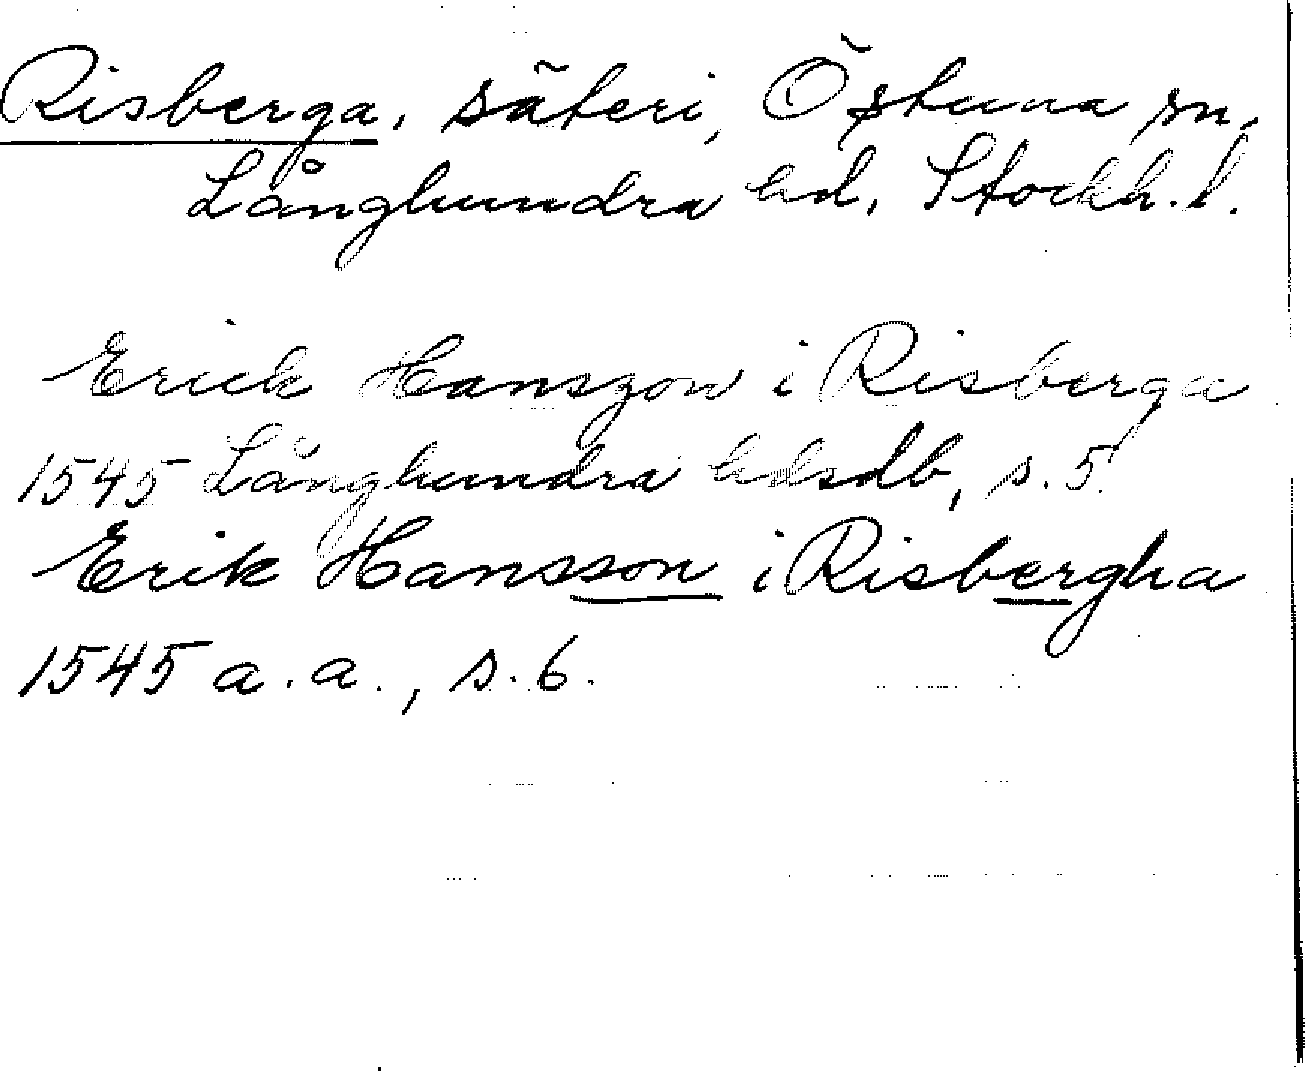 Risberga, säteri, Östuna sn,
Långhundra hd, Stockh. l.
Erick Hanszon i Risberga
1545 Långhundra hdsdb, s. 5.
Erik Hansson i Risbergha
1545 a.a., s. 6.